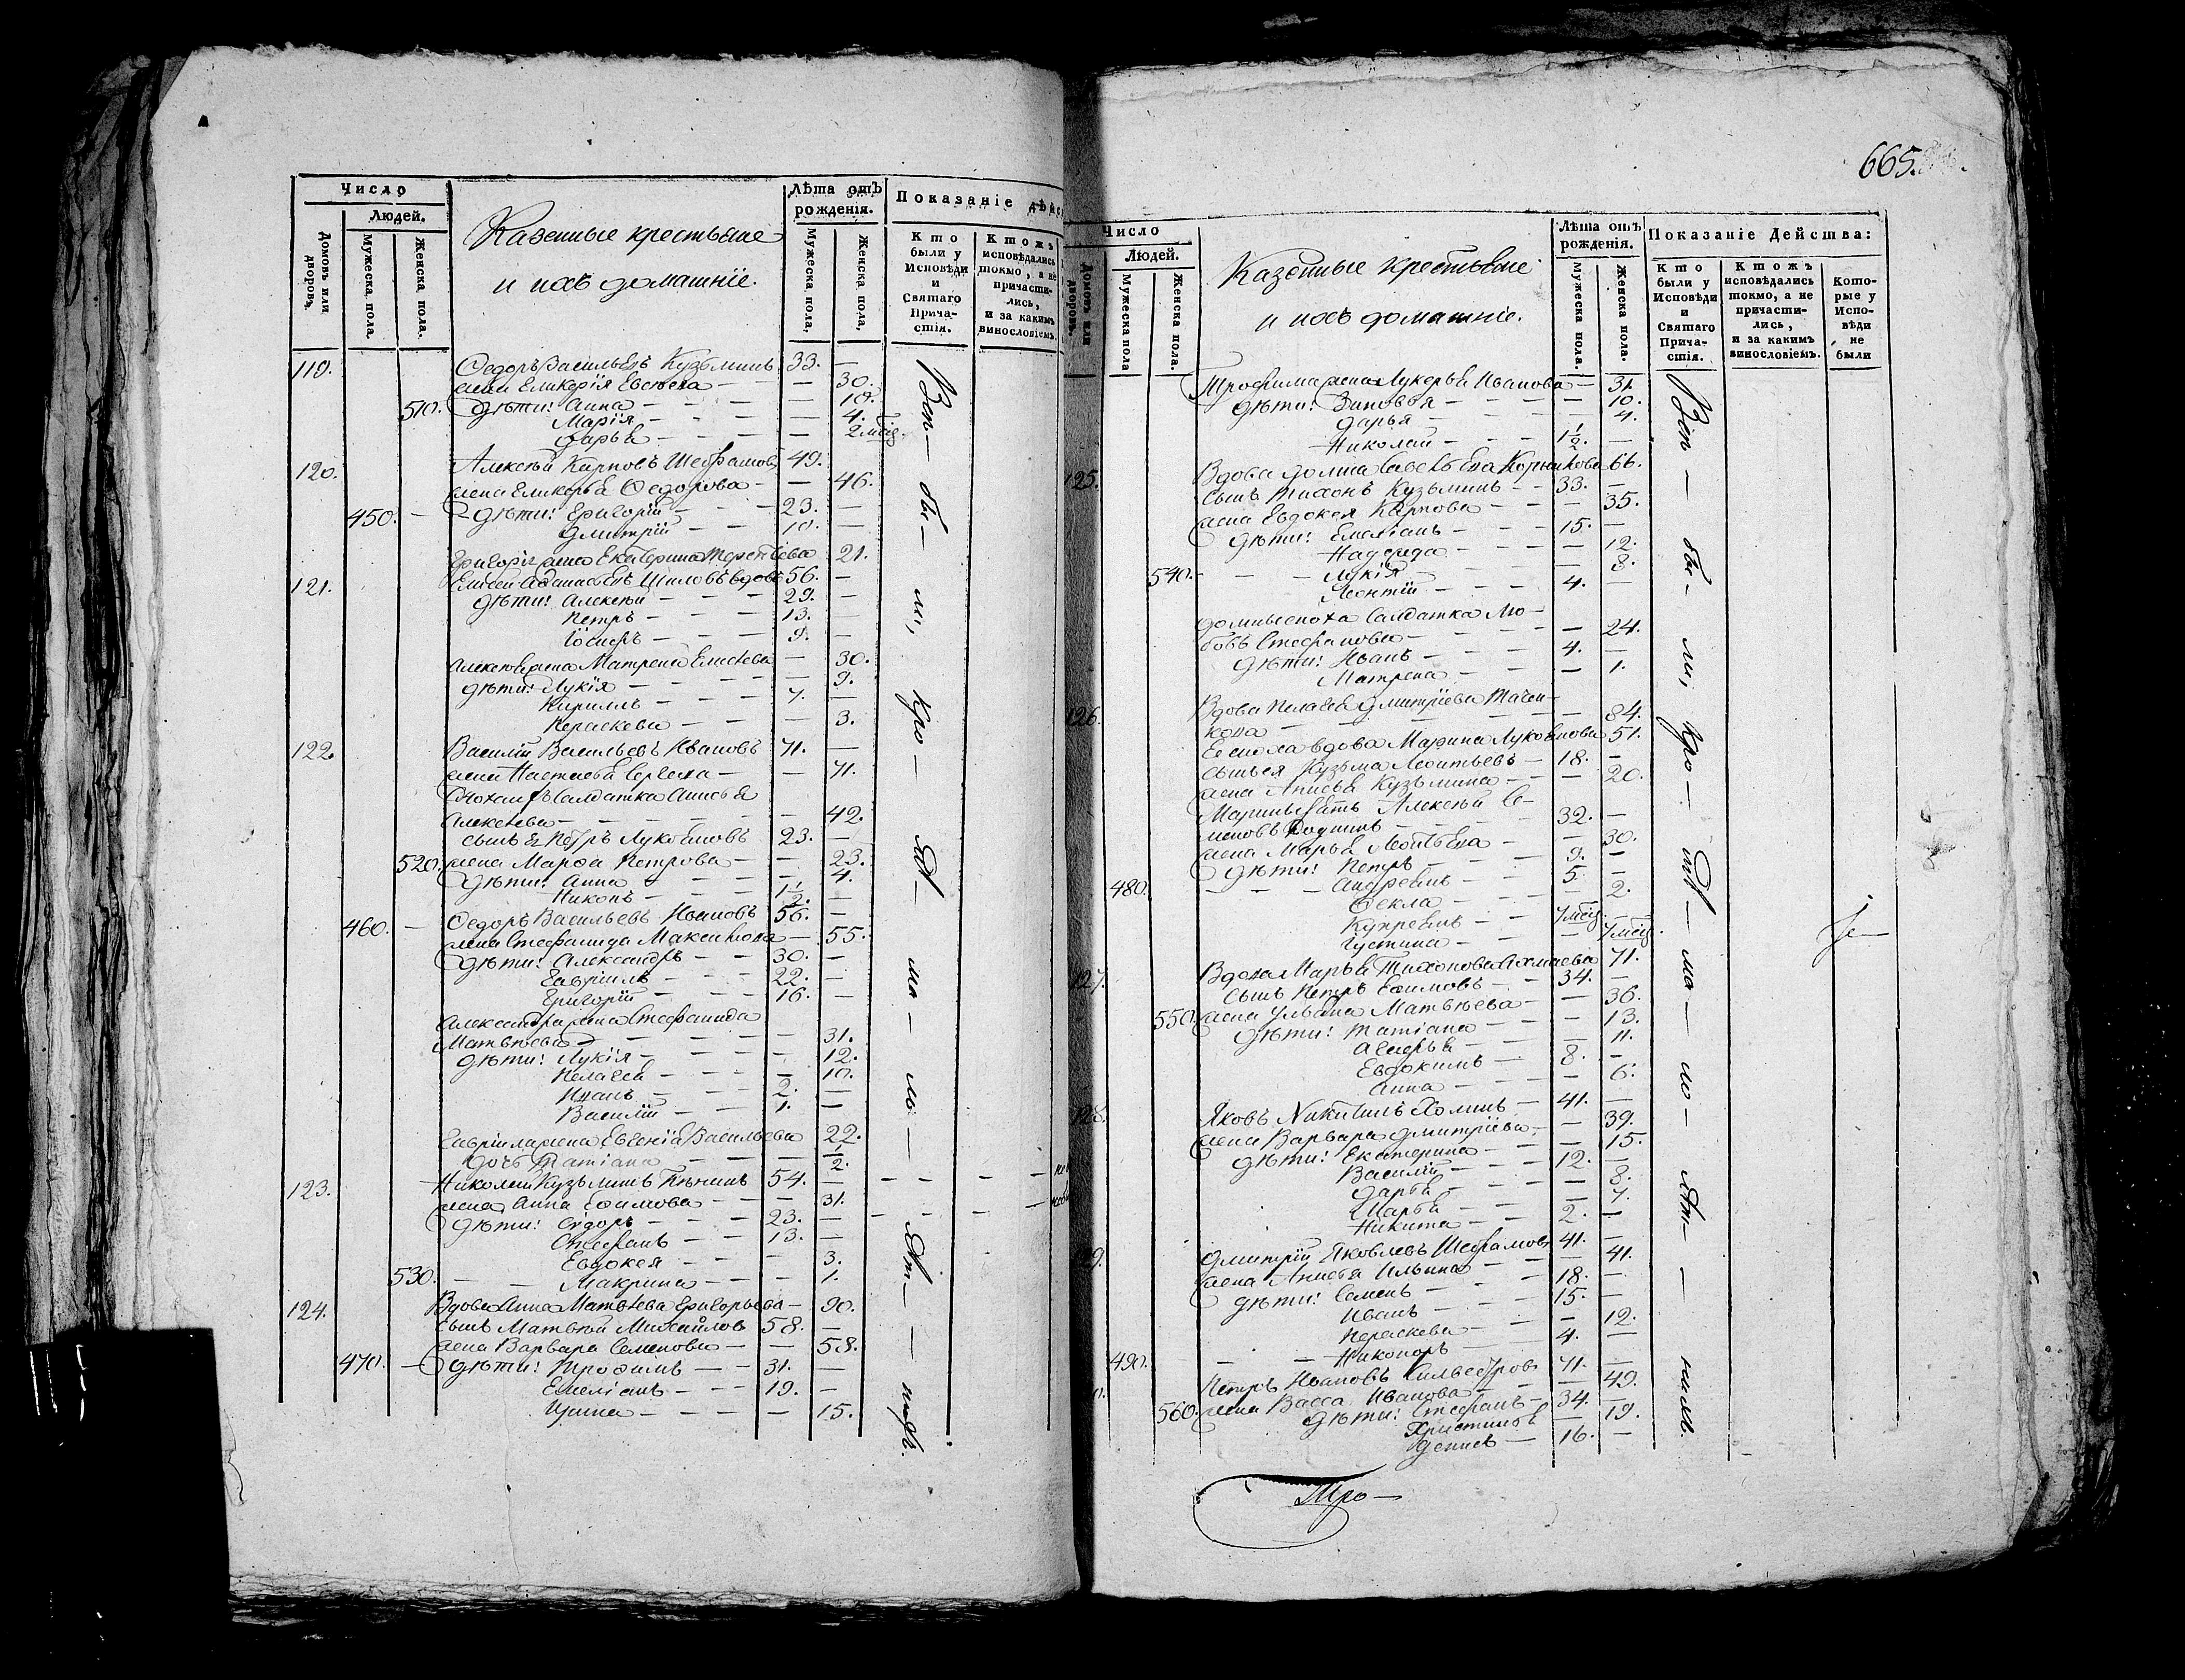 Число
Людей.
Домовъ или дворовъ.
Мужеска пола.
Женска пола.
Казенные крестьяне
и ихъ домашніе.
Лѣта отъ рожденія.
Мужеска пола.
Женска пола.
Показаніе дѣйс
Кто были у Исповѣди и Святаго Прича-стія.
Ктожъ исповѣдались токмо, а не причасти-лись, и за какимъ винословіемъ.
119. Ѳедоръ Васильевъ Кузьминъ 33. —
жена Гликерія Евсѣева — — 30.
510. Дѣти: Анна — — 10.
Марія — — 4.
Дарья — — 2 мѣсц.
120. Алексѣй Карповъ 49.
жена Гликерья Ѳедорова — — 46.
450. — Дѣти: Григорій — 23. —
Дмитрій — 10. —
Григорія жена Екатерина Терентьева 21.
121. Елисей Аѳанасьевъ Шиловъ вдовъ 56. —
Дѣти: Алексѣй — 29. —
Петръ — 13. —
Іосифъ — 9. —
Алексѣя жена Матрена Елисѣева — 30.
Дѣти: Лукія — — 9.
Кириллъ — 7. —
Параскева — — 3.
122. Василій Васильевъ Ивановъ 71. —
жена Настасья Сергеева — — 71.
Сноха ихъ Салдатка Анисья
Алексѣева — — 42.
сынъ ея Петръ Лукояновъ 23. —
520. жена Марѳа Петрова — — 23.
Дѣти: Анна — — 4.
Никонъ — 1½. —
460. — Ѳедоръ Васильевъ Ивановъ 56. —
жена Стефанида Максимова — 55.
Дѣти: Александръ — 30. —
Гавріилъ — 22. —
Григорій — 16. —
Александра жена Стефанида
Матвѣева — — 31.
Дѣти: Лукія — — 12.
Пелагея — — 10.
Иванъ — 2. —
Василій — 1. —
Гавріила жена Евгенія Васильева 22.
дочь Татіана — — ½.
123. Николай Кузьминъ 54. —
жена Анна Ефимова — — 31.
Дѣти: Сидоръ — 23. —
Стефанъ — 13. —
Евдокея — — 3.
530. — Макрина — — 1.
124. Вдова Анна Матвѣева Григорьева — 90.
сынъ Матвѣй Михайловъ 58. —
жена Варвара Семенова — — 58.
470. — Дѣти: Трофимъ — 31. —
Емеліанъ — 19. —
Ирина — — 15.
665.
Число
Людей.
Домовъ или дворовъ.
Мужеска пола
Женска пола.
Казенные крестьяне
и ихъ домашніе.
Лѣта отъ рожденія.
Мужеска пола.
Женска пола.
Показаніе Действа:
Кто были у Исповѣди и Святаго Прича-стія.
Ктожъ исповѣдались токмо, а не причасти-лись, и за какимъ винословіемъ.
Кото-рые у Испо-вѣди не были
Трофима жена Лукерья Иванова — 31.
Дѣти: Зиновья — — 10.
Дарья — — 4.
Николай — 1½. —
125. Вдова Домна Савельева 66.
Сынъ Тихонъ Кузьминъ — 33. —
жена Евдокея Карпова — — 35.
Дѣти: Емеліанъ — 15. —
Надежда — — 12.
540. — Лукія — — 8.
Леонтій — 4. —
Домны сноха Салдатка Лю-
бовъ Стефанова — — 24.
Дѣти: Иванъ — 4. —
Матрена — — 1.
126. Вдова Пелагея Дмитріева
— — 84.
Ея сноха вдова Марина Лукоянова 51.
сынъ ея Кузьма Леонтьевъ — 18. —
жена Анисья Кузьмина — — 20.
Марины зять Алексѣй Се-
меновъ — 32. —
жена Марья Леонтьева — — 30.
Дѣти: Петръ — 9. —
480. — Андреянъ — 5. —
Ѳекла — — 2.
Купреянъ — 7 мѣсц. —
Іустина — — 7 мѣсц.
127. Вдова Марья Тихонова 71.
Сынъ Петръ Ефимовъ — 34. —
550. жена Ульяна Матвѣева — — 36.
Дѣти: Татіана — — 13.
— — 11.
Евдокимъ — 8. —
Анна — — 6.
128. Яковъ Никитинъ Холинъ — 41. —
жена Варвара Дмитріева — — 39.
Дѣти: Екатерина — — 15.
Василій — 12. —
Дарья — — 8.
Марья — — 7.
Никита — 2. —
9. Дмитрій Яковлевъ 41. —
жена Анисья Ильина — — 41.
Дѣти: Семенъ — 18. —
Иванъ — 15. —
Параскева — — 12.
490. — Никоноръ — 4. —
Петръ Ивановъ Сильвестровъ 71. —
жена Васса Иванова — — 49.
560. Дѣти: Стефанъ — 34. —
Христинья — 19.
Денисъ — 16. —
Тро—